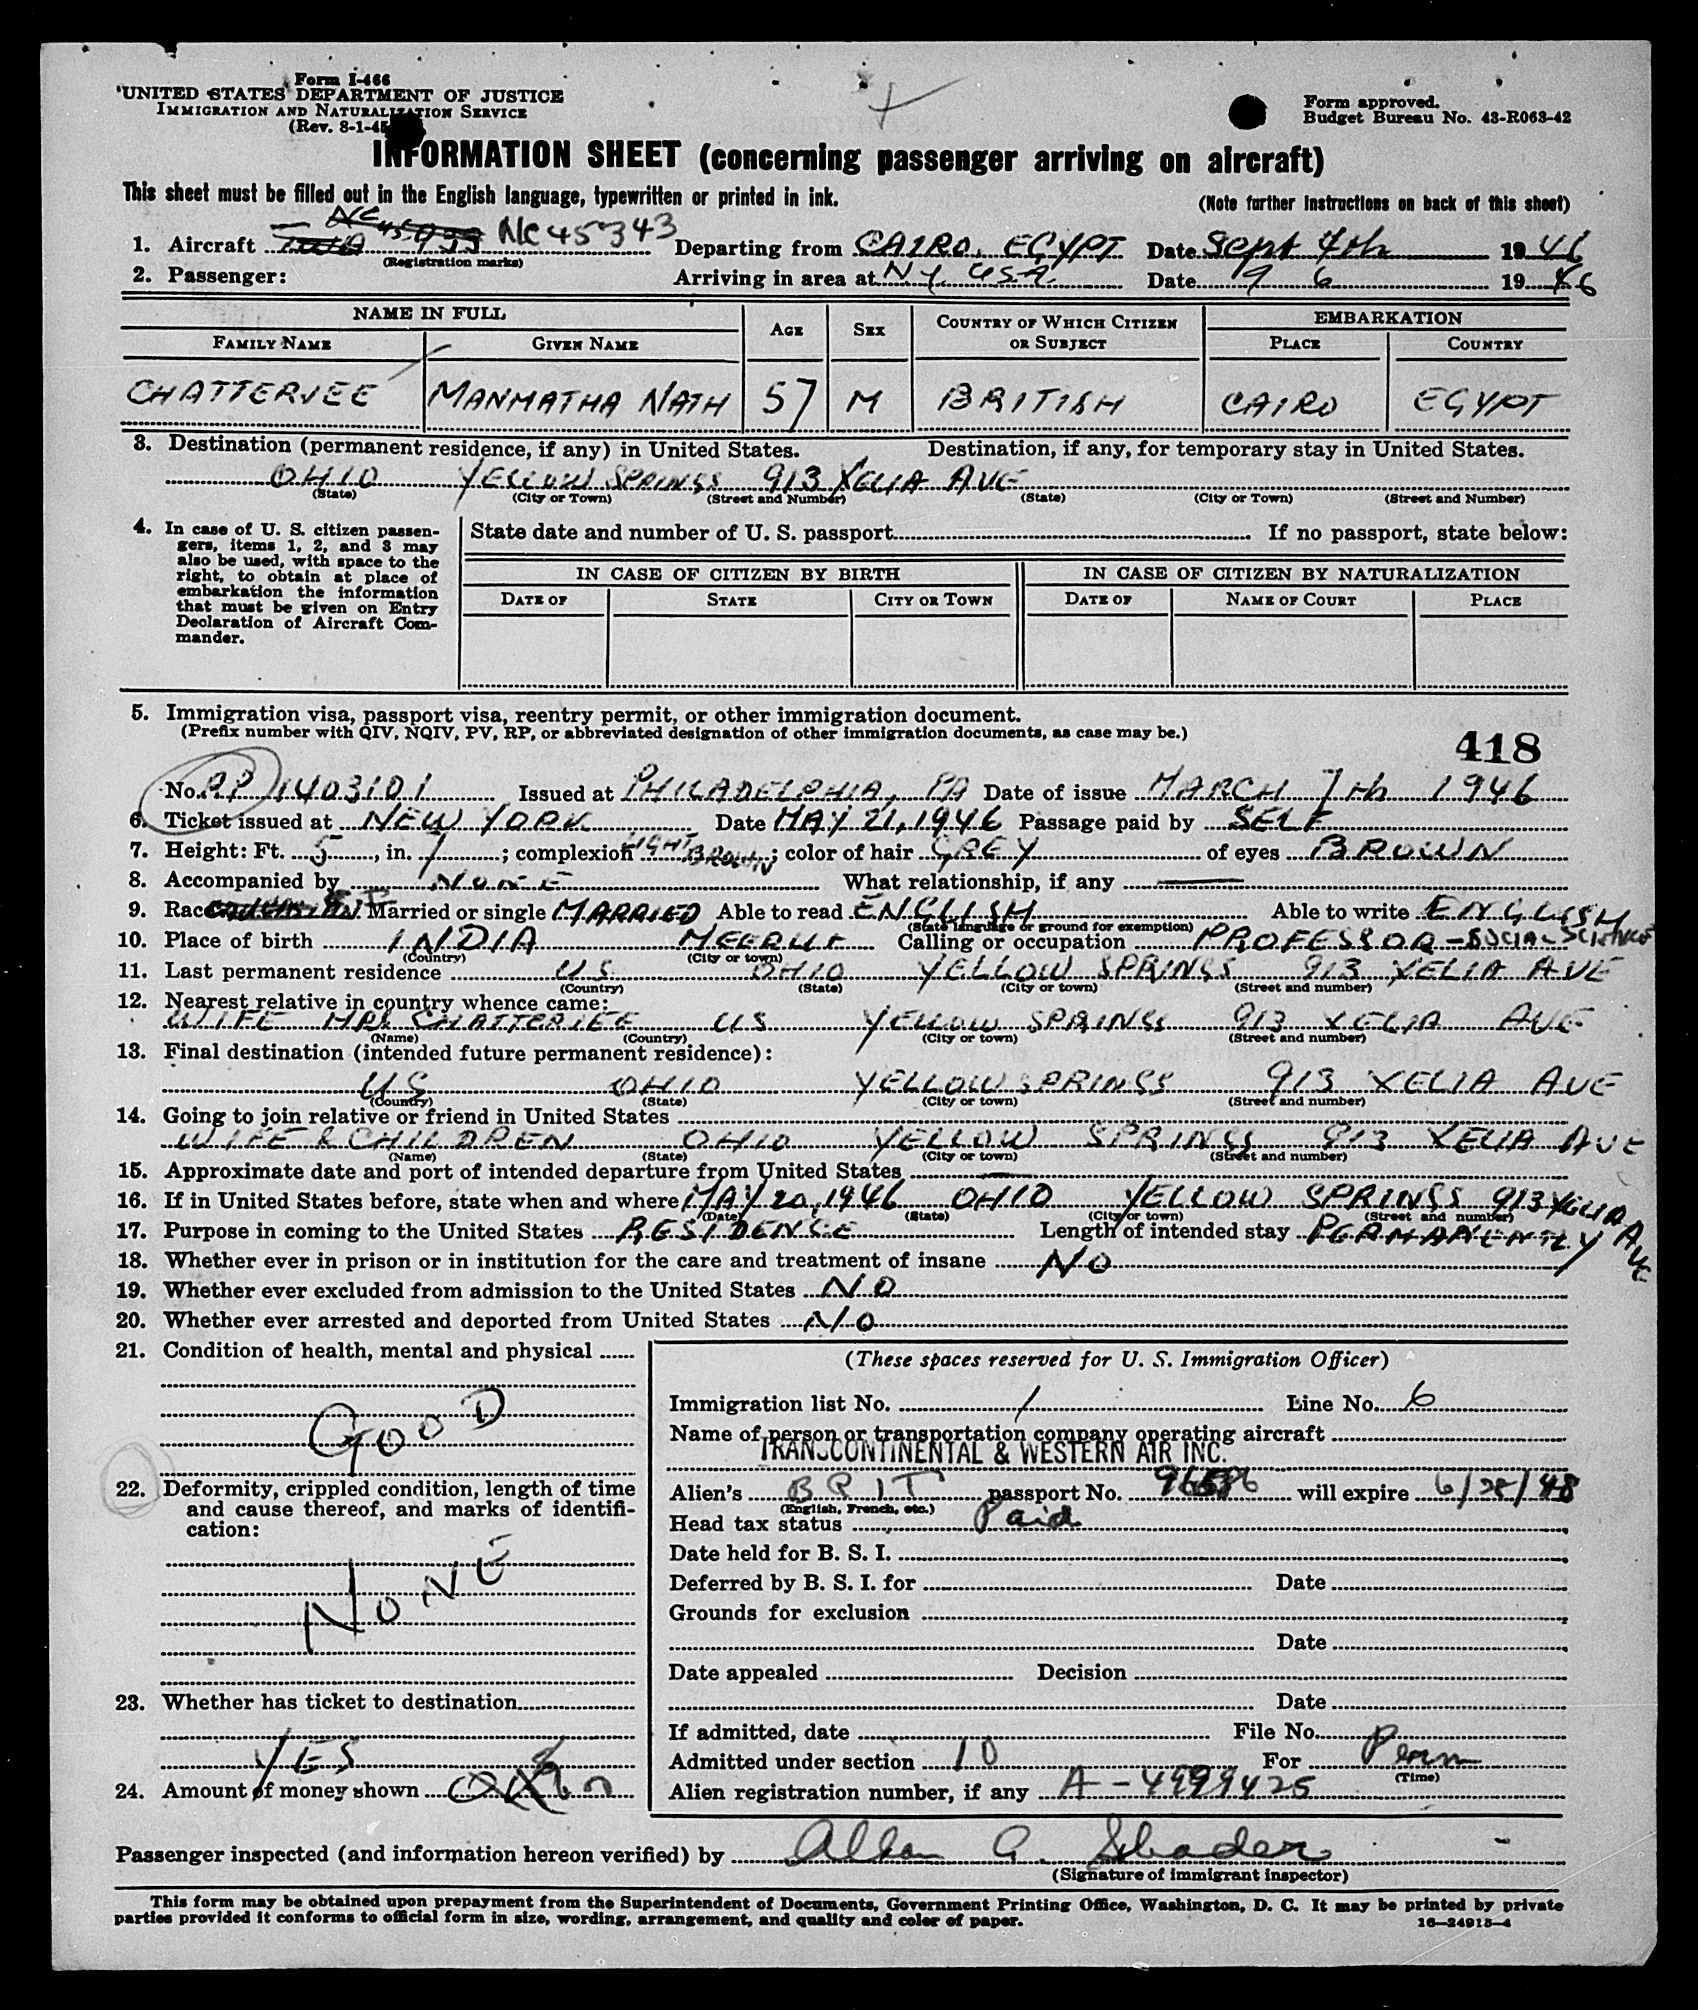 Form I-466
UNITED STATES DEPARTMENT OF JUSTICE
IMMIGRATION AND NATURALIZATION SERVICE
(Rev. 8-1-45
Form approved.
Budget Bureau No. 43-R063-42
INFORMATION SHEET (concerning passenger arriving on aircraft)
This sheet must be filled out in the English language, typewritten or printed in ink.
(Note further instructions on back of this sheet)
1. Aircraft NC45343 Departing from CAIRO, EGYPT Date Sept 4th 1946
(Registration marks)
2. Passenger: Arriving in area at N.Y. USA Date 9 6 1946
NAME IN FULL AGE SEX COUNTRY OF WHICH CITIZEN OR SUBJECT EMBARKATION
FAMILY NAME GIVEN NAME PLACE COUNTRY
CHATTERJEE MANMATHA NATH 57 M BRITISH CAIRO EGYPT
3. Destination (permanent residence, if any) in United States. Destination, if any, for temporary stay in United States.
OHIO YELLOW SPRINGS 913 XELIA AVE
(State) (City or Town) (Street and Number) (State) (City or Town) (Street and Number)
4. In case of U. S. citizen passen-
gers, items 1, 2, and 3 may
also be used, with space to the
right, to obtain at place of
embarkation the information
that must be given on Entry
Declaration of Aircraft Com-
mander.
State date and number of U. S. passport If no passport, state below:
IN CASE OF CITIZEN BY BIRTH IN CASE OF CITIZEN BY NATURALIZATION
DATE OF STATE CITY OR TOWN DATE OF NAME OF COURT PLACE
5. Immigration visa, passport visa, reentry permit, or other immigration document.
(Prefix number with QIV, NQIV, PV, RP, or abbreviated designation of other immigration documents, as case may be.)
418
No. RP 1403101 Issued at PHILADELPHIA, PA Date of issue MARCH 7th 1946
6. Ticket issued at NEW YORK Date MAY 21, 1946 Passage paid by SELF
7. Height: Ft. 5, in. 7; complexion LIGHT BROWN; color of hair GREY of eyes BROWN
8. Accompanied by NONE What relationship, if any
9. Race E I Married or single MARRIED Able to read ENGLISH Able to write ENGLISH
(State language or ground for exemption)
10. Place of birth INDIA MEERUT Calling or occupation PROFESSOR - SOCIAL SCIENCE
(Country) (City or town)
11. Last permanent residence US OHIO YELLOW SPRINGS 913 XELIA AVE
(Country) (State) (City or town) (Street and number)
12. Nearest relative in country whence came:
WIFE MRS CHATTERJEE US YELLOW SPRINGS 913 XELIA AVE
(Name) (Country) (City or town) (Street and number)
13. Final destination (intended future permanent residence):
US OHIO YELLOW SPRINGS 913 XELIA AVE
(Country) (State) (City or town) (Street and number)
14. Going to join relative or friend in United States
WIFE & CHILDREN OHIO YELLOW SPRINGS 913 XELIA AVE
(Name) (State) (City or town) (Street and number)
15. Approximate date and port of intended departure from United States
16. If in United States before, state when and where MAY 20, 1946 OHIO YELLOW SPRINGS 913 XELIA AVE
(Date) (State) (City or town) (Street and number)
17. Purpose in coming to the United States RESIDENCE Length of intended stay PERMANENTLY
18. Whether ever in prison or in institution for the care and treatment of insane NO
19. Whether ever excluded from admission to the United States NO
20. Whether ever arrested and deported from United States NO
21. Condition of health, mental and physical
GOOD
22. Deformity, crippled condition, length of time
and cause thereof, and marks of identifi-
cation:
NONE
23. Whether has ticket to destination
YES
24. Amount of money shown
(These spaces reserved for U. S. Immigration Officer)
Immigration list No. 1 Line No. 6
Name of person or transportation company operating aircraft
TRANSCONTINENTAL & WESTERN AIR INC.
Alien's BRIT passport No. will expire 6/28/48
(English, French, etc.)
Head tax status Paid
Date held for B. S. I.
Deferred by B. S. I. for Date
Grounds for exclusion
Date
Date appealed Decision
Date
If admitted, date File No.
Admitted under section 10 For Perm
(Time)
Alien registration number, if any A-4999425
Passenger inspected (and information hereon verified) by Allan G. Shader
(Signature of immigrant inspector)
This form may be obtained upon prepayment from the Superintendent of Documents, Government Printing Office, Washington, D. C. It may be printed by private
parties provided it conforms to official form in size, wording, arrangement, and quality and color of paper.
16-24915-4